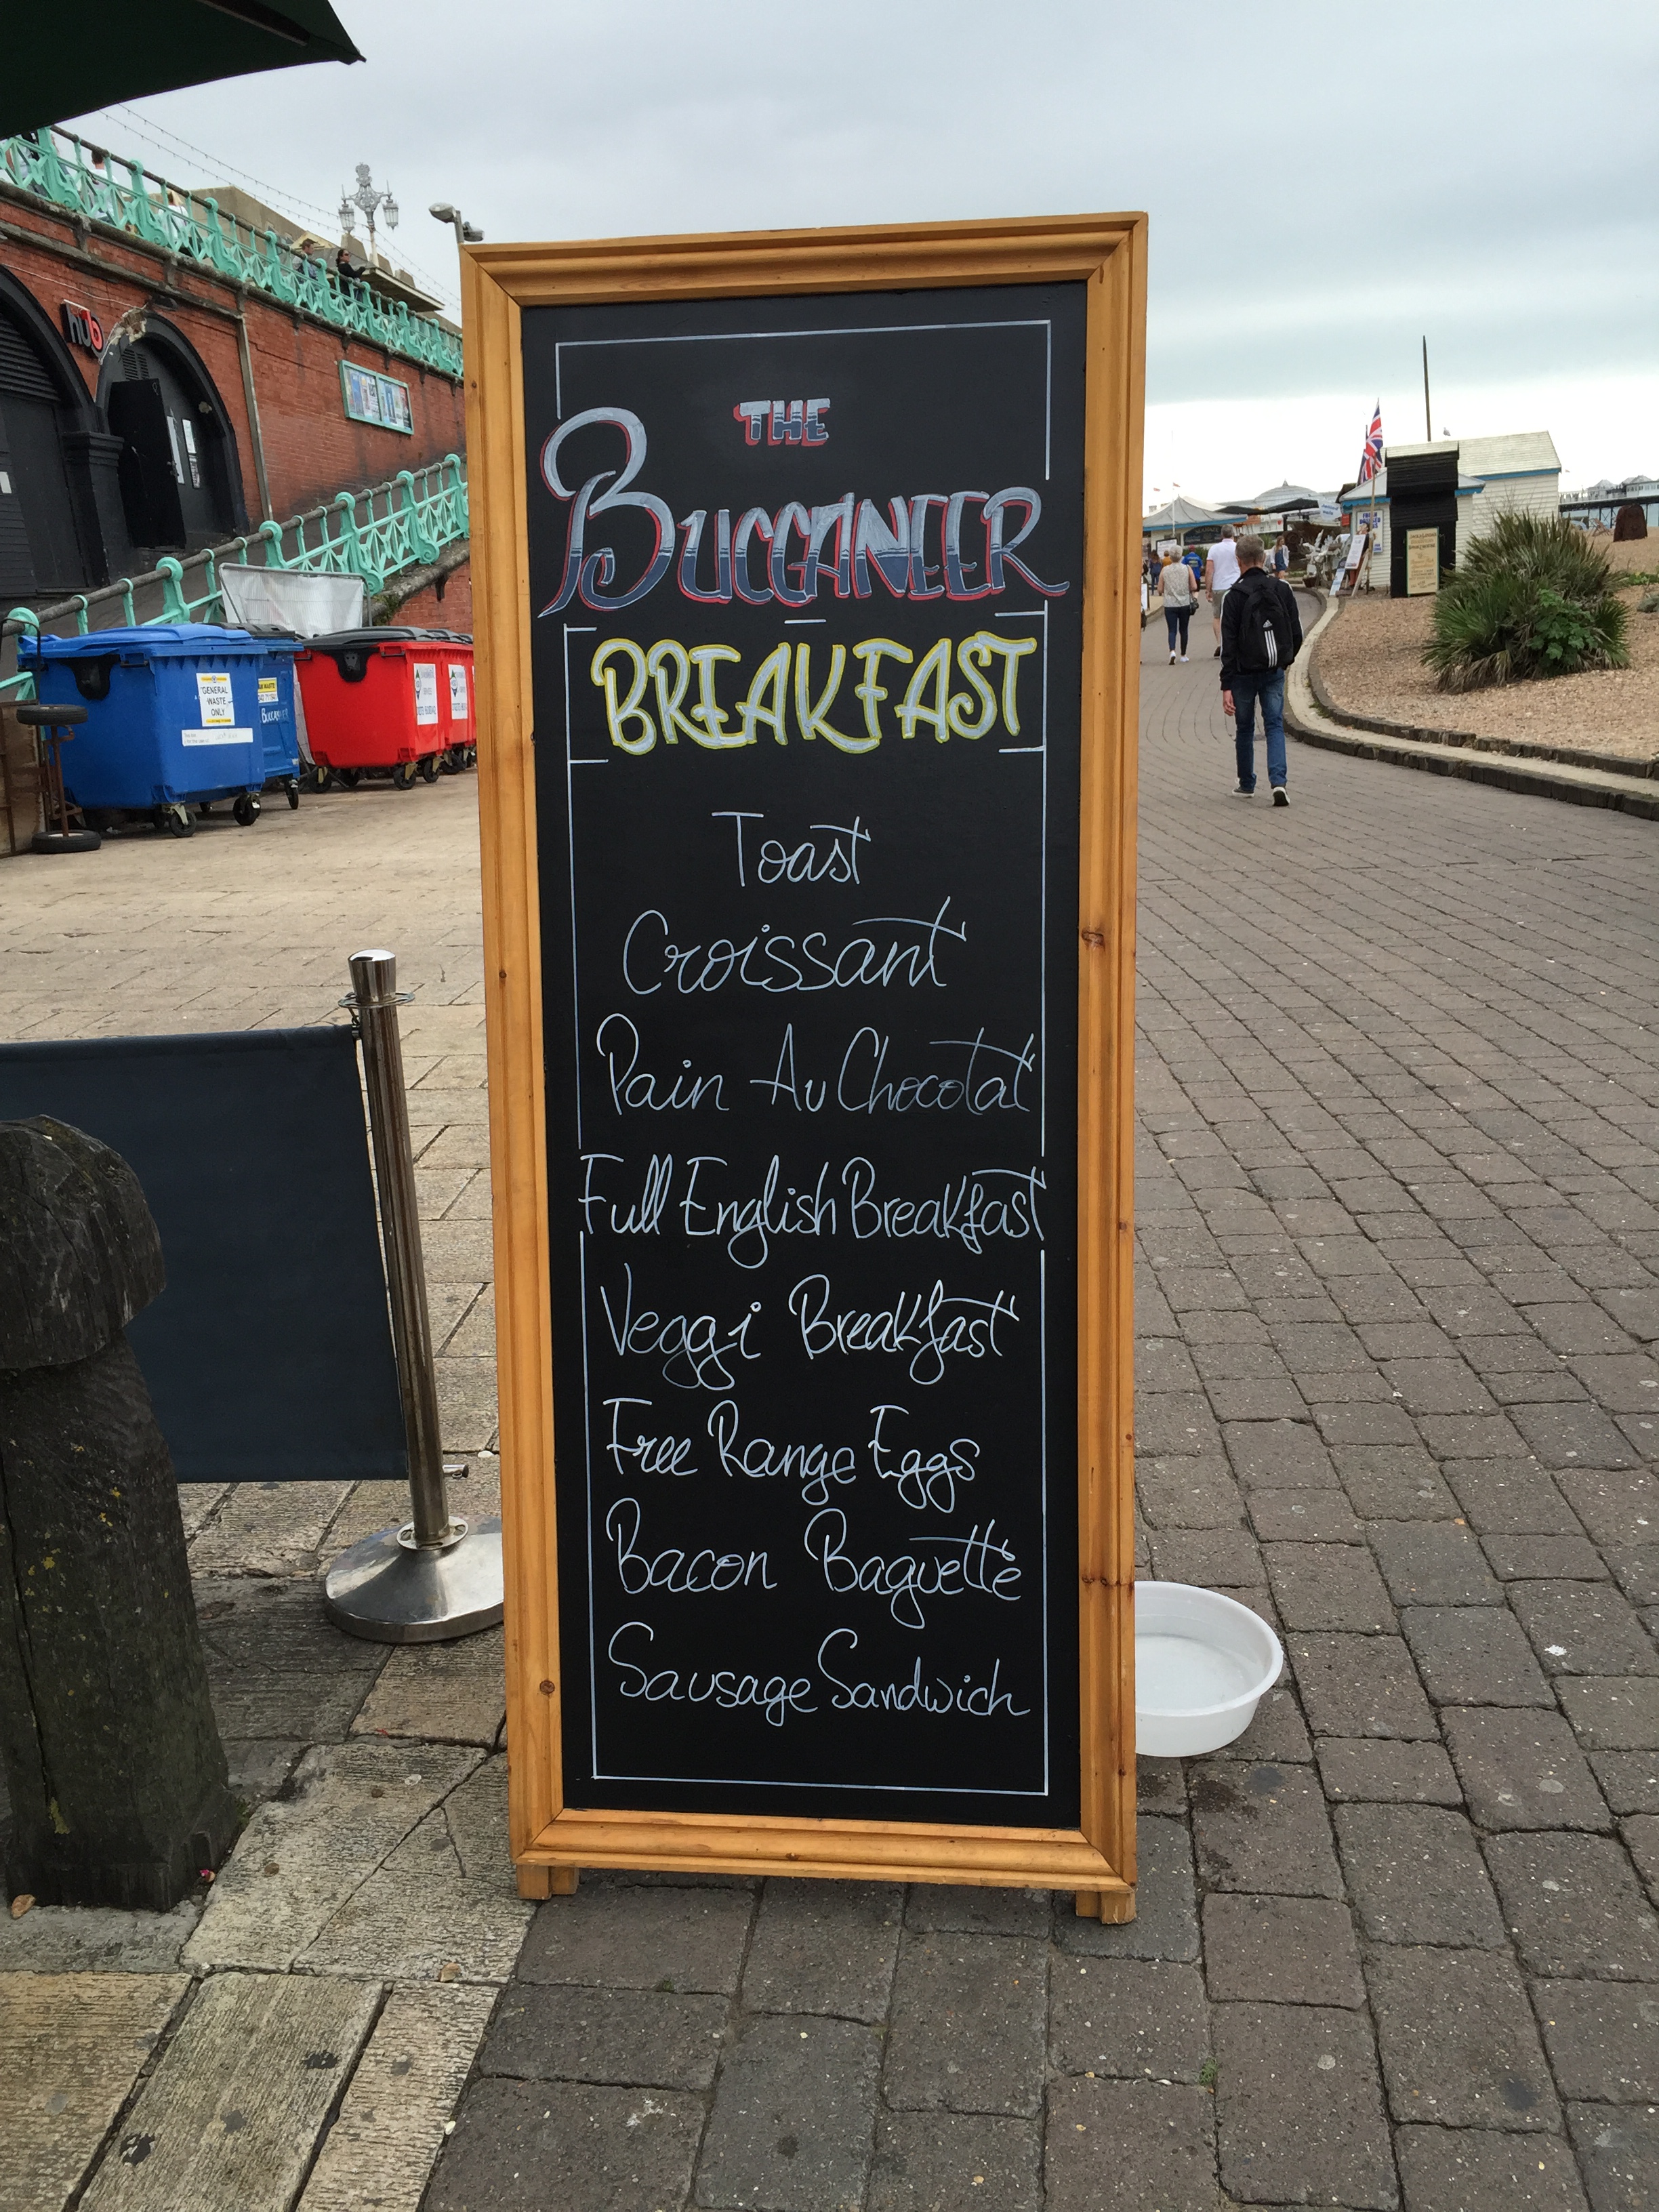 THE
BUCCANEER
BREAKFAST
Toast
Croissant
Pain Au Chocolat
Full English Breakfast
Veggi Breakfast
Free Range Eggs
Bacon Baguette
Sausage Sandwich
hub
GENERAL
WASTE
ONLY
BUCCANEER